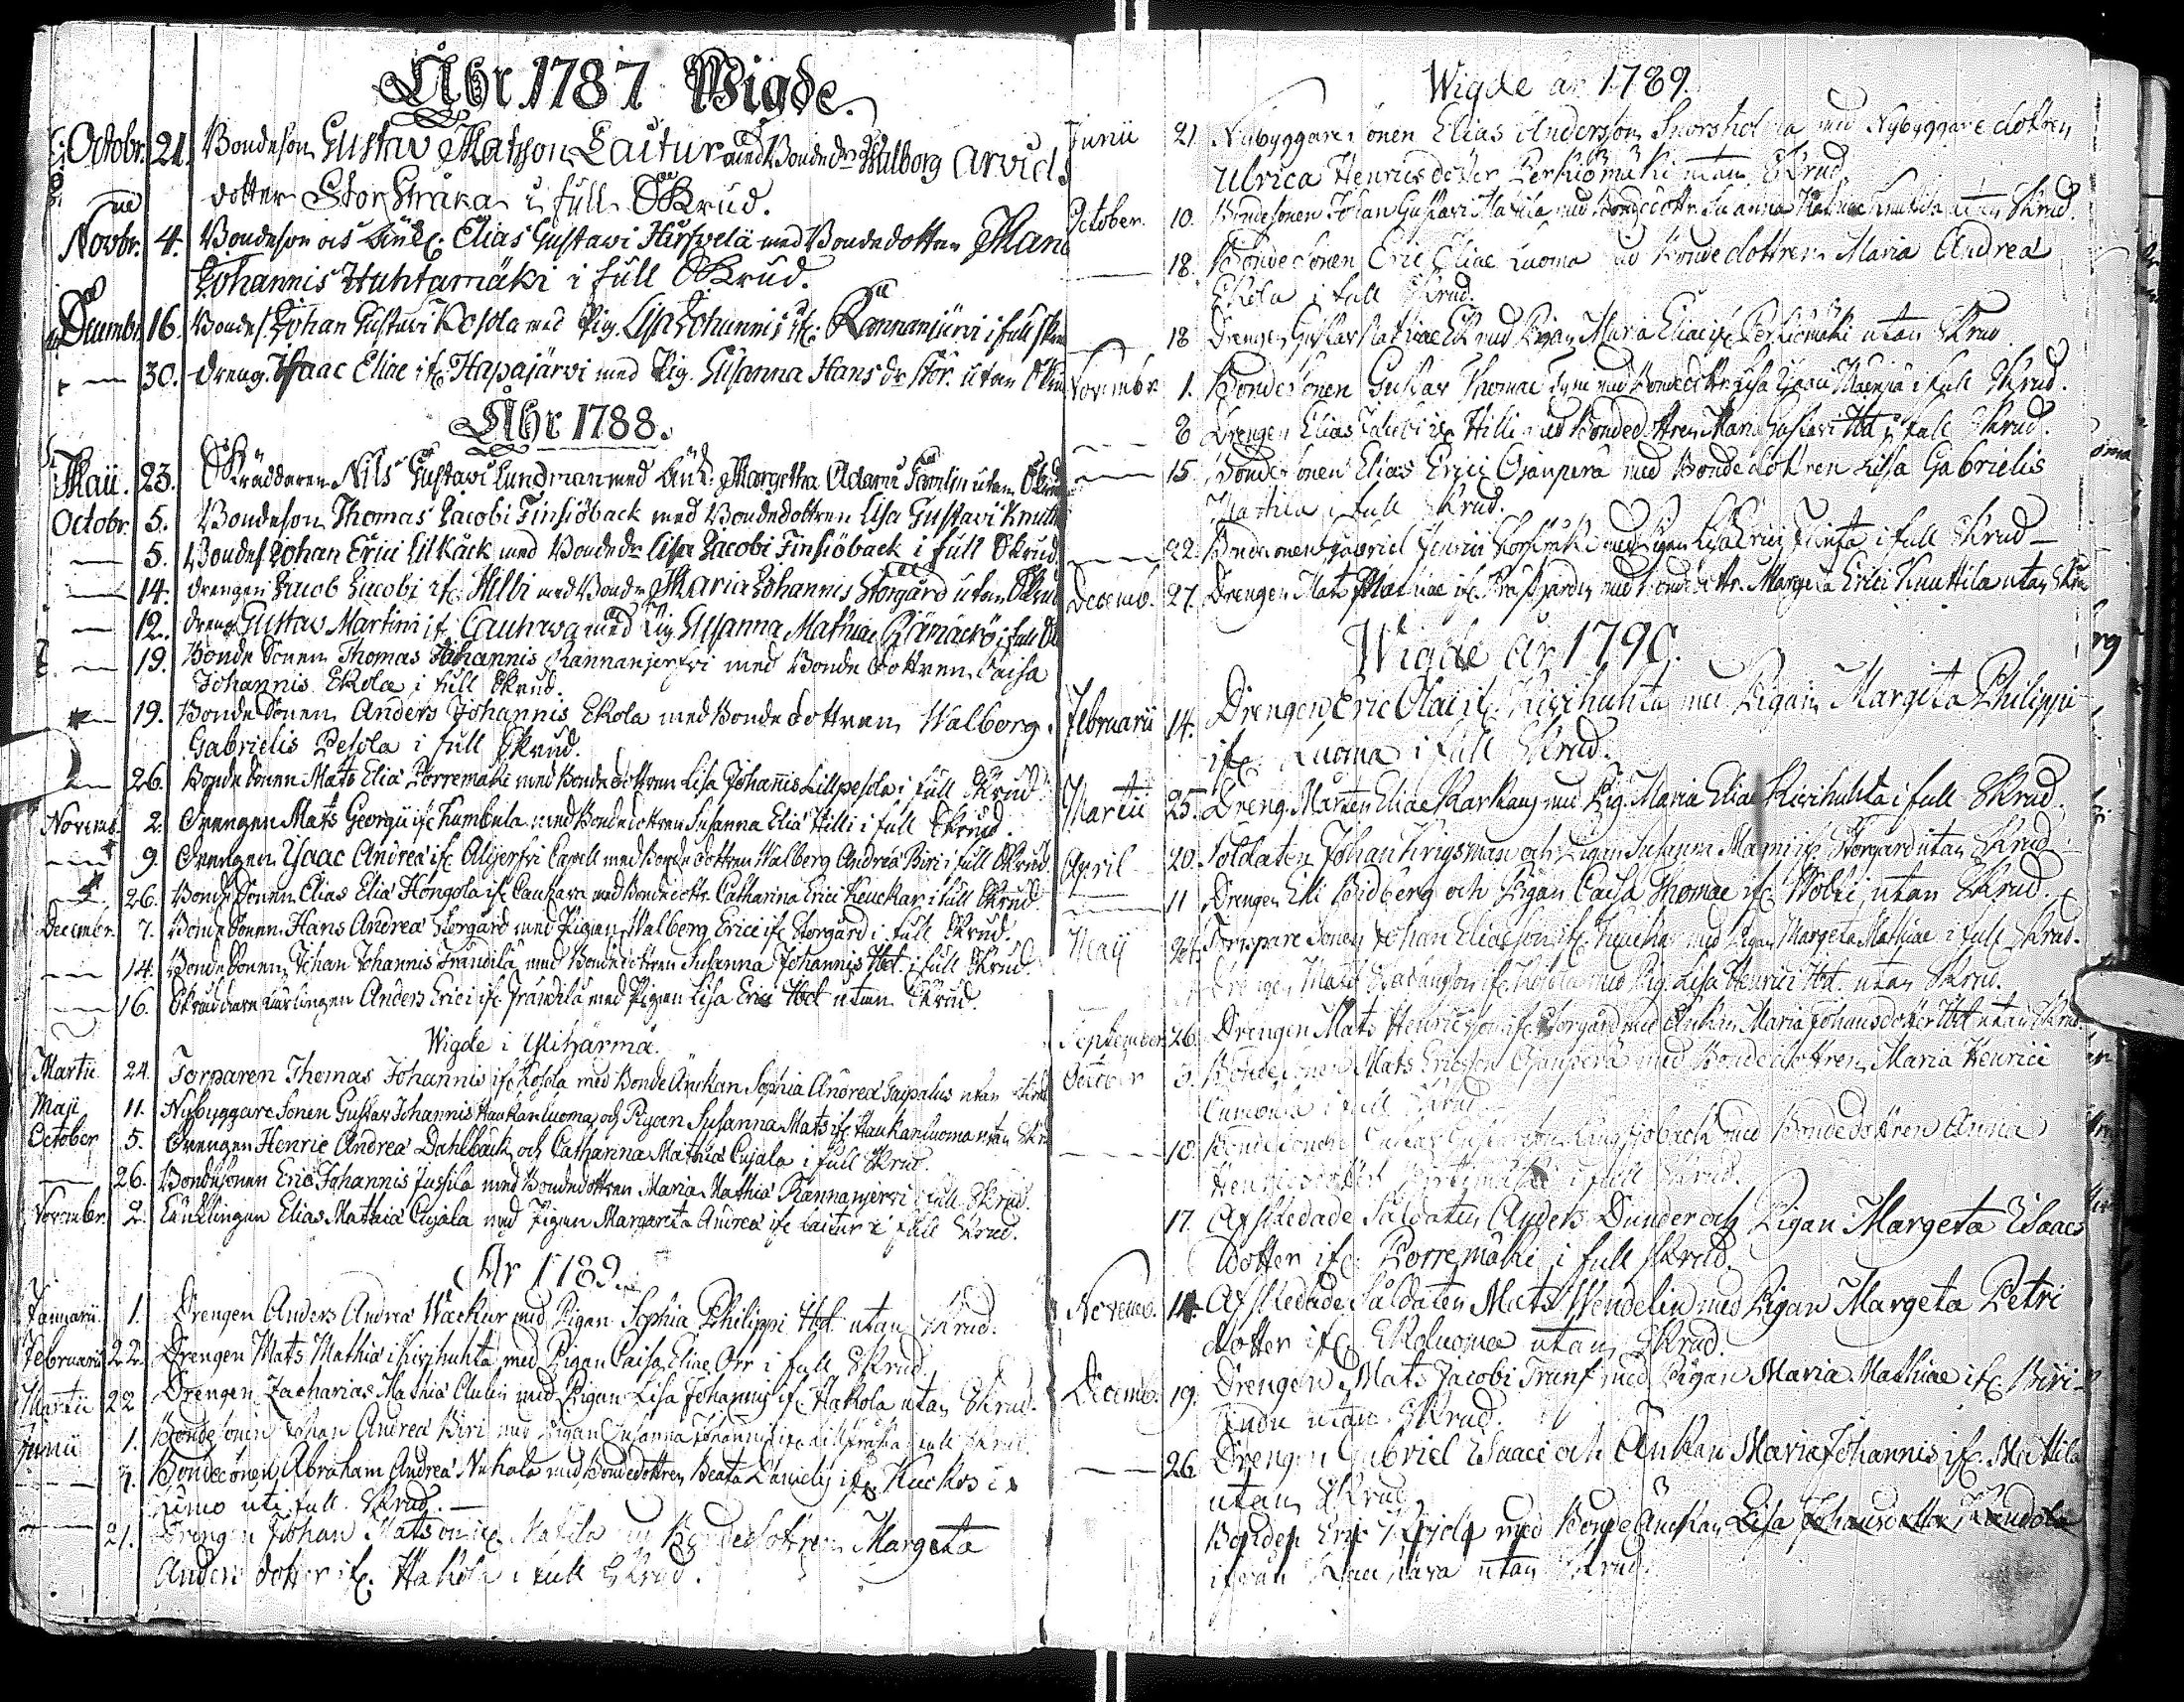 Åhr 1787 Wigde
Octobr. 21. Bondeson Gustav Matsson Lautur med Bonde dr Walborg Arvids
dotter Stor Stråka i full Skrud.
Novbr. 4. Bondeson och Änkl: Elias Gustavi Hirsvelä med Bondedottren Maria
Johannis Huhtamäki i full Skrud.
Decembr. 16. Bondes. Johan Gustavi Kosola med Pig. Lisa Johannis ifr. Rannanjärvi i full skrud
— 30. dreng. Isaac Eliae ifr. Hapajärvi med Pig. Susanna Hans dr Stor. utan Skrud
Åhr 1788.
Maii. 23. Skräddaren Nils Gustavi Lundman med Änk: Margetha Adami Famlin utan Skrud
Octobr. 5. Bondeson Thomas Jacobi Finsiöback med Bondedottren Lisa Gustavi Knuti
— 5. Bondes Johan Erici Lilkåck med Bonde dr Lisa Jacobi Finsiöback i full Skrud
— 14. drengen Jacob Jacobi ifr. Hilli med Bonde dr Maria Johannis Storgård utan Skrud
— 12. dreng Gustav Martini ifr. Cauhava med Pig. Susanna Mathiae i full
— 19. Bonde Sonen Thomas Johannis Rannanjerfvi med Bonde dottren Caisa
Johannis Ekola i full Skrud.
— 19. Bonde Sonen Anders Johannis Ekola med Bonde dottren Walborg
Gabrielis Pesola i full Skrud.
— 26. Bonde Sonen Mats Eliæ Porremäki med Bonde dottren Lisa Johannis Lillpesola i full Skrud
Novemb. 2. Drengen Mats Georgii ifr Kumbula med Bondedottren Susanna Eliæ Hilli i full Skrud.
— 9. Drengen Isaac Andreæ ifr Alijerfvi Capell med Bonde dottren Walberg Andreæ Biri i full Skrud
— 26. Bonde Sonen Elias Eliæ Hongola ifr Cauhava med Bonde dottr. Catharina Erici Keuckar i full Skrud.
Decembr. 7. Bonde Sonen Hans Andreæ Storgård med Pigan Walberg Erici ifr Storgård i full Skrud.
— 14. Bonde Sonen Johan Johannis Frändilä med Bondedottren Susanna Johannis Ibd. i full Skrud.
— 16. Skräddare Lärlingen Anders Erici ifr Frändilä med Pigan Lisa Erici Ibd utan Skrud.
Wigde i Ylihärmä.
Martii 24. Torparen Thomas Johannis ifr Kosola med Bonde Änckan Sophia Andreæ Saipalus utan Skrud
Maji 11. Nybyggare Sonen Gustav Johannis Haukanluoma och Pigan Susanna Mats ifr Haukanluoma utan Skr
October 5. Drengen Henric Andreæ Dahlbäck och Catharina Mathiæ Cujala i full Skrud.
— 26. Bondesonen Eric Johannis Jussila med Bondedottren Maria Mathiæ Rannanjerfvi i full Skrud.
Novembr. 2. Enklingen Elias Mathiæ Cujala med Pigan Margareta Andreæ ifr Lautur i full Skrud.
År 1789.
Januarii 1. Drengen Anders Andreæ Wäckur med Pigan Sophia Philippi Ibd. utan Skrud.
Februarii 22. Drengen Mats Mathiæ i Kivihuhta med Pigan Caisa Eliae Orr i full Skrud.
Martii 22 Drengen Zacharias Mathiæ med Pigan Lisa Johannis ifr Hakola utan Skrud.
Junii 1. Bondesonen Johan Andreæ Biri med Pigan Susanna Johannis ifr full Skrud.
— 7. Bondesonen Abraham Andreæ Niskala med Bondedottren Beata Danielis ifr Kuckos i
Kimo uti full Skrud. —
— 21. Drengen Johan Matsson ifr. Mattila med Bondedottren Margeta
Anders dotter ifr. Hakola i full Skrud.
Wigde år 1789.
Junii 21 Nybyggare sonen Elias Andersson med Nybyggare dottren
Ulrica Henricsdotter Perkiömäki utan Skrud.
October. 10. Bondesonen Johan Gustavi Mattila med Bondedottr. Susanna Knuttila utan Skrud.
— 18. Bonde Sonen Eric Eliæ Luoma med Bonde dottren Maria Andreæ
Ekola i full Skrud.
— 18 Drengen Gustav Mathiae Ek med Pigan Maria Eliæ ifr. Perkiömäki utan Skrud.
Novembr 1. Bondesonen Gustav Thomae med Bondedottr. Lisa i full Skrud.
— 8 Drengen Elias Jacobi ifr Hilli med Bondedottren Maria Gustavi Ibd i full Skrud.
— 15 Bondesonen Elias Erici Ojanperä med Bondedottren Lisa Gabrielis
Mattila i full Skrud.
— 22. Bondesonen Gabriel Henrici med Pigan Lisa Erici i full Skrud —
Decemb. 27. Drengen Mats Mathiae ifr. med Bondedottr. Margeta Erici Knuttila utan Skrud
Wigde år 1790.
Februarii 14. Drengen Eric Olai ifr Kivihuhta med Pigan Margeta Philippi
ifr. Luoma i full Skrud.
Martii 25. Dreng. Marten Eliae Karhang med Pig. Maria Eliae Kivihuhta i full Skrud.
April 20. Soldaten Johan Krigsman och Pigan Susanna ifr Storgård utan Skrud
— 11 Drengen Elli Lidberg och Pigan Caisa Thomae ifr. Wolti utan Skrud.
Maij 24. Torpare Sonen Johan Eliasson ifr. Keuckar med Pigan Margeta Mathiae i full Skrud.
Drengen Mats ifr. Kosola med Pig. Lisa Henrici Ibd. utan Skrud.
September 26. Drengen Mats Henricsson ifr Storgård med Änkan Maria Johansdotter Ibd utan Skrud.
October 3. Bondesonen Mats Ericsson Ojanperä med Bondedottren Maria Henrici
i full Skrud.
— 10. Bondesonen Gustav med Bondedottren Anna
Henricsdotter i full Skrud.
17. Afskedade Soldaten Anders Dunder och Pigan Margeta Esaacs
dotter ifr. Porremäki i full skrud.
Novemb. 14. Afskedade Soldaten Mats Wendelin med Pigan Margeta Petri
dotter ifr. Ekoluoma utan Skrud.
Decemb. 19. Drengen Mats Jacobi Trumf med Pigan Maria Mathiae ifr. Biri
utan Skrud.
— 26 Drengen Gabriel Esaaci och Änkan Maria Johannis ifr. Mattila
utan Skrud.
Bonden Eric med Bonde Änckan Lisa Johansdotter
ifrån utan Skrud.